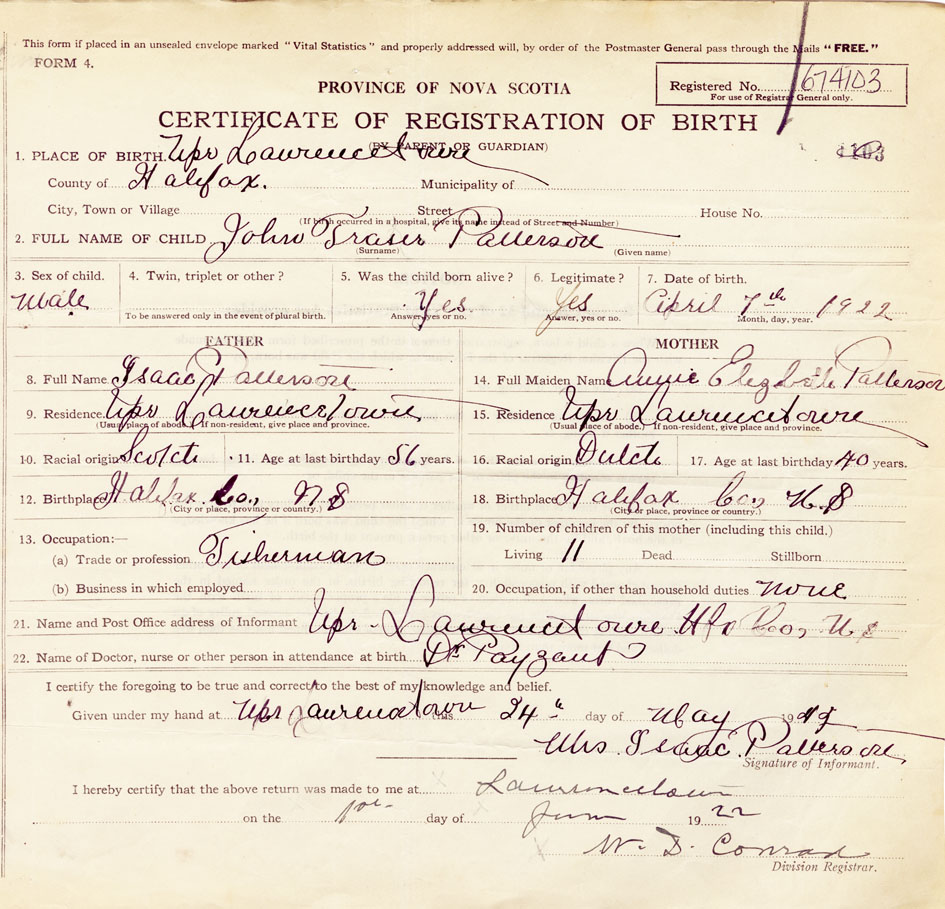 This form if placed in an unsealed envelope marked "Vital Statistics" and properly addressed will, by order of the Postmaster General pass through the Mails "FREE."
FORM 4.
PROVINCE OF NOVA SCOTIA
Registered No. 674103
For use of Registrar General only.
CERTIFICATE OF REGISTRATION OF BIRTH
(BY PARENT OR GUARDIAN)
1. PLACE OF BIRTH. Upr Lawrencetown
103
County of Halifax. Municipality of
City, Town or Village Street House No.
(If birth occurred in a hospital, give its name instead of Street and Number)
2. FULL NAME OF CHILD John Fraser Patterson
(Surname) (Given name)
3. Sex of child. 4. Twin, triplet or other? 5. Was the child born alive? 6. Legitimate? 7. Date of birth.
Male Yes. Yes April 7th 1922
To be answered only in the event of plural birth. Answer, yes or no. Answer, yes or no. Month, day, year.
FATHER MOTHER
8. Full Name Isaac Patterson 14. Full Maiden Name Annie Elizbeth Patterson
9. Residence Upr Lawrencetown 15. Residence Upr Lawrencetown
(Usual place of abode.) If non-resident, give place and province. (Usual place of abode.) If non-resident, give place and province.
10. Racial origin Scotch 11. Age at last birthday 56 years. 16. Racial origin Dutch 17. Age at last birthday 40 years.
12. Birthplace Halifax Co, NS 18. Birthplace Halifax Co, N.S
(City or place, province or country.) (City or place, province or country.)
19. Number of children of this mother (including this child.)
13. Occupation:—
(a) Trade or profession Fisherman Living 11 Dead Stillborn
(b) Business in which employed 20. Occupation, if other than household duties none
21. Name and Post Office address of Informant Upr - Lawrencetown Hfx Co, N S
22. Name of Doctor, nurse or other person in attendance at birth Dr Payzant
I certify the foregoing to be true and correct to the best of my knowledge and belief.
Given under my hand at Upr Lawrencetown this 24th day of May 19
Mrs. Isaac. Patterson
Signature of Informant.
I hereby certify that the above return was made to me at Lawrencetown
on the day of June 1922
W. D. Conrad
Division Registrar.